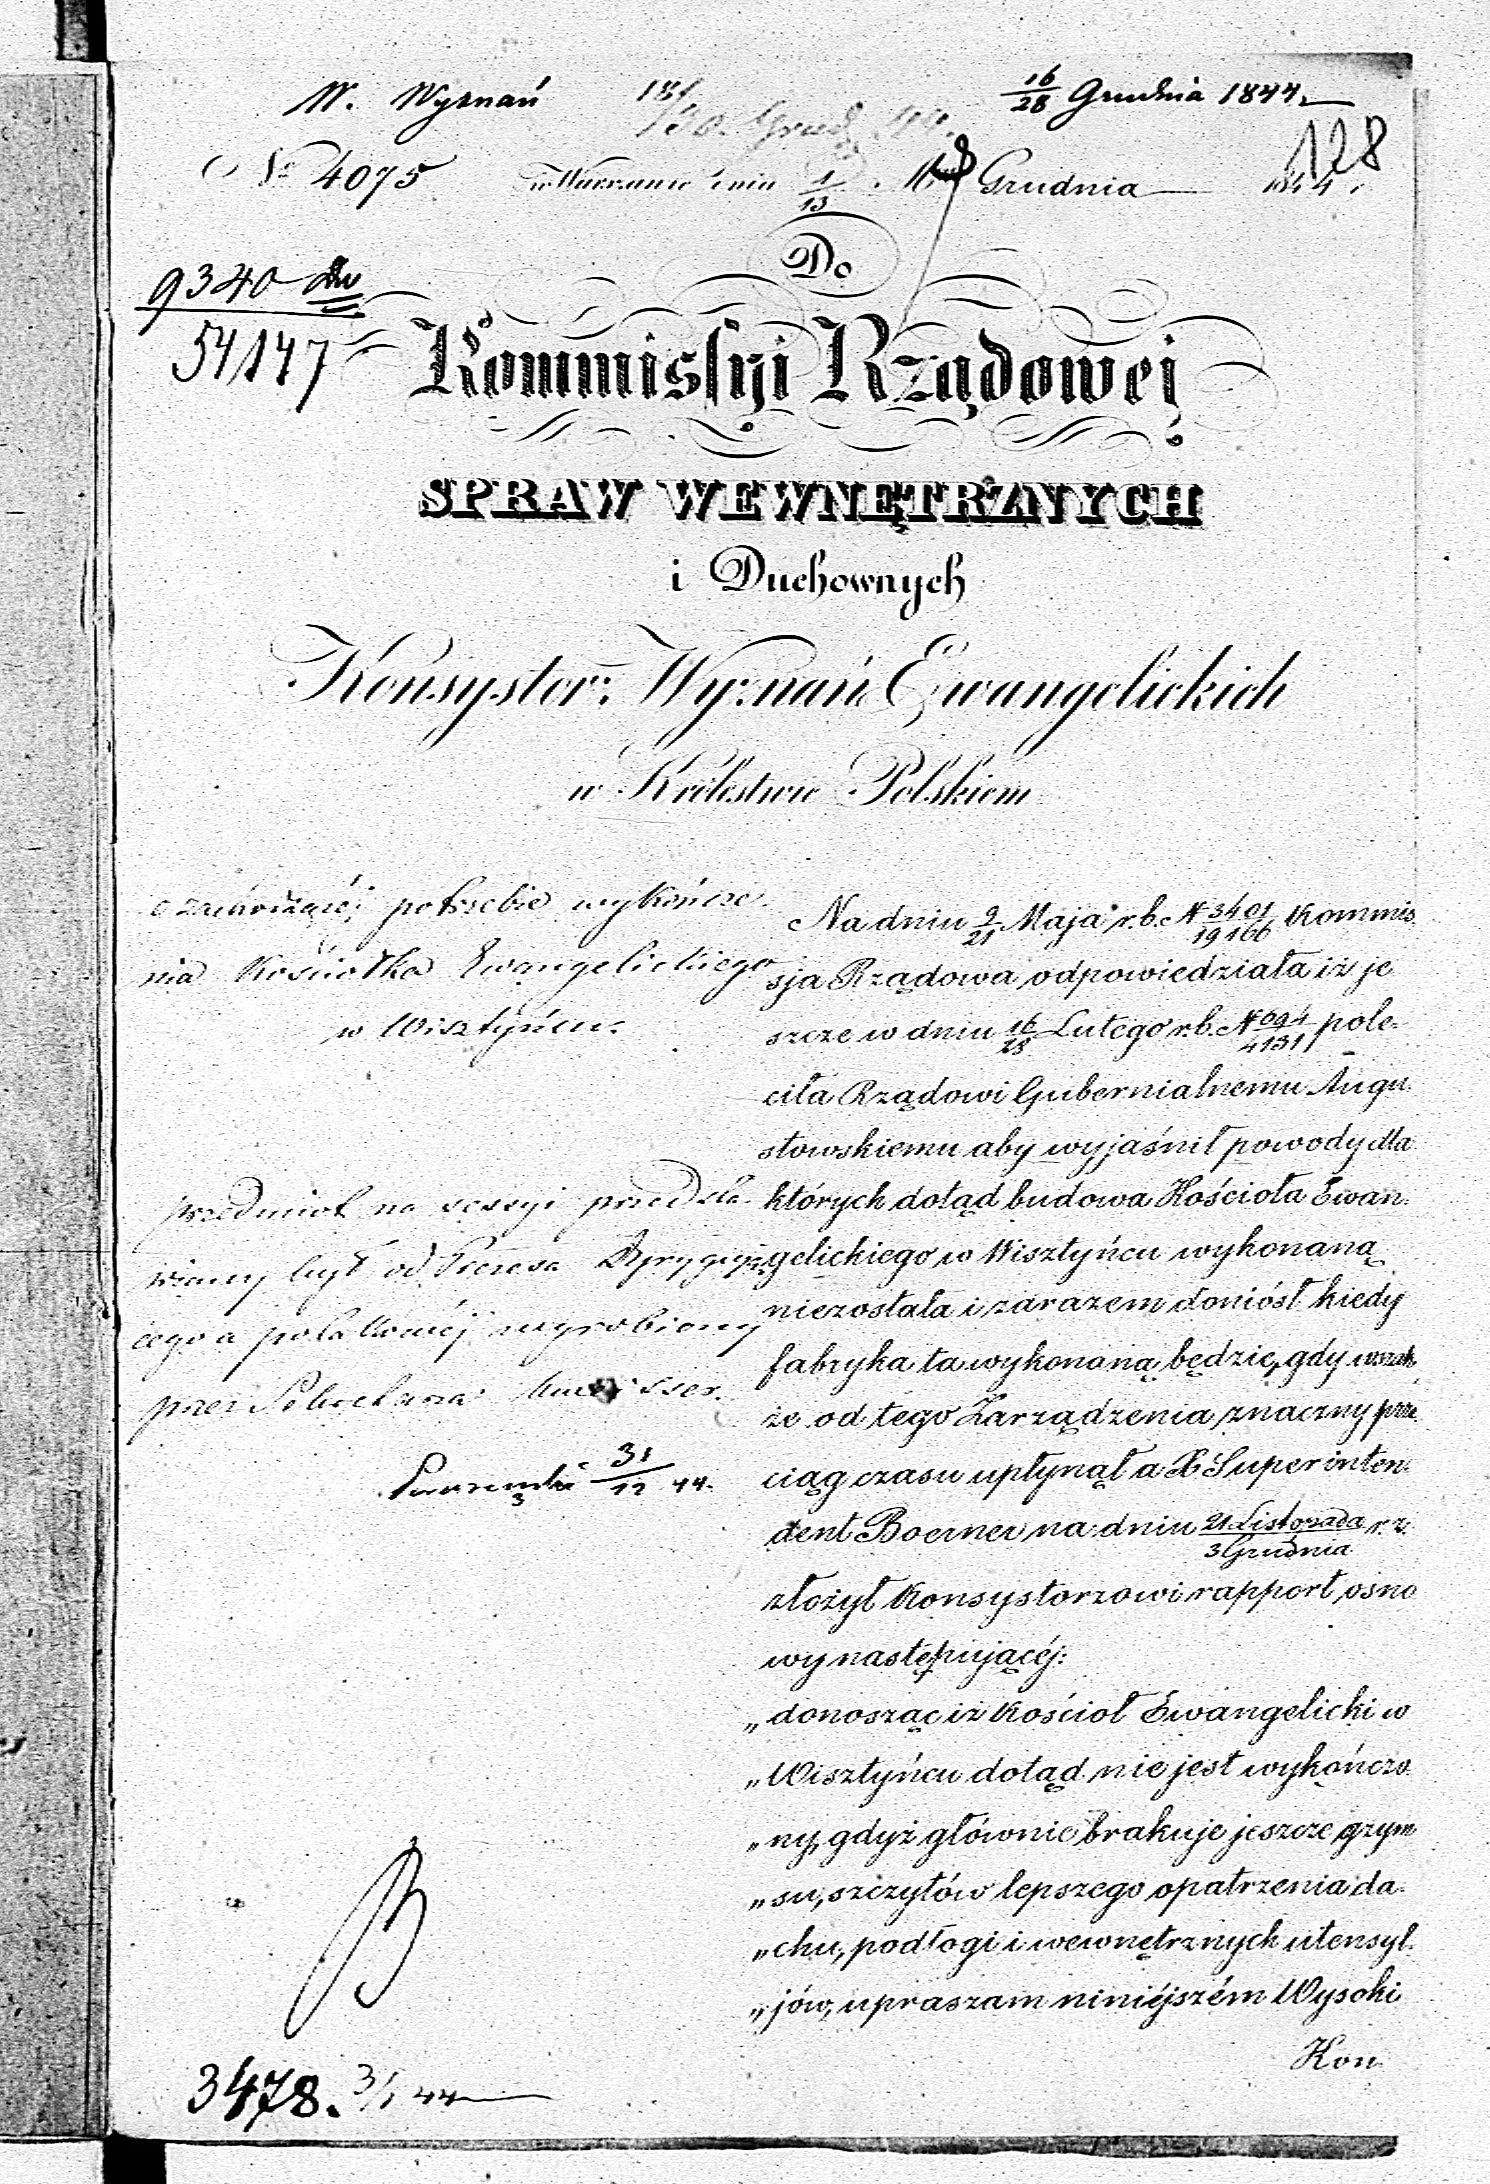 W. Wyznań
16/28 Grudnia 1844
128
No 4075 w Warszawie dnia 1/13 Grudnia 1844.
9340
54147
Do
Kommissyi Rządowej
SPRAW WEWNĘTRZNYCH
i Duchownych
Konsystor: Wyznań Ewangelickich
w Królestwie Polskiem
o zachodzącéj potrzebie wykończe-
nia Kościołka Ewangelickiego
w Wisztyńcu.
Na dniu 9/21 Maja r.b. N 3401/19166 Kommis
sja Rządowa odpowiedziała iż je
szcze w dniu 16/28 Lutego r.b. N 094/4131 pole-
ciła Rządowi Gubernialnemu Augu
stowskiemu aby wyjaśnił powody dla
których dotąd budowa Kościoła Ewan-
gelickiego w Wisztyńcu wykonaną
niezostała i zarazem doniósł kiedy
fabryka ta wykonaną będzie, gdy wszak
że od tego Zarządzenia znaczny prze
ciąg czasu upłynął a X Superinten-
dent Boerner na dniu 21 Listopada/3 Grudnia r. z.
złożył Konsystorzowi rapport osno
wy następującéj:
„donosząc iż Kościoł Ewangelicki w
„Wisztyńcu dotąd nie jest wykończo
„ny, gdyż głównie brakuje jeszcze gzym
„su, szczytów lepszego opatrzenia da-
„chu, podłogi i wewnętrznych utensyl-
„jów, upraszam niniéjszém Wysoki
Kon
przedmiot na sessyi przedsta-
wiony był od Prezesa Dyrygują-
cego a
przez
31/12 44.
3478. 3/1 44